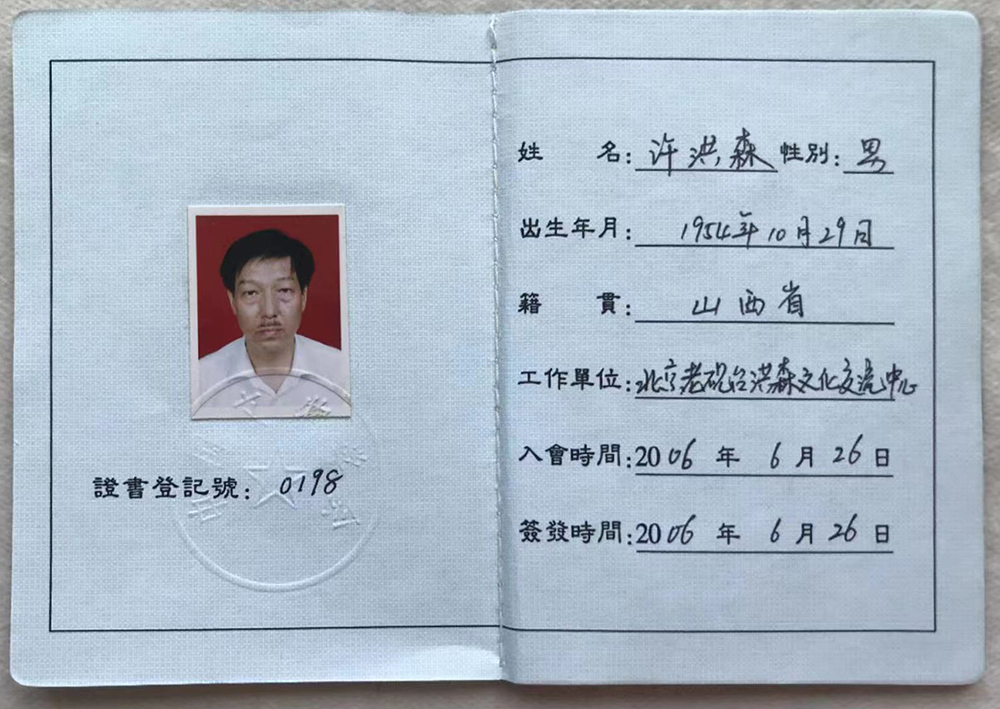 證書登記號：0198
姓　　名：许洪森 性别：男
出生年月：1954年10月29日
籍　　貫：山西省
工作單位：北京老砚台洪森文化交流中心
入會時間：2006年6月26日
簽發時間：2006年6月26日